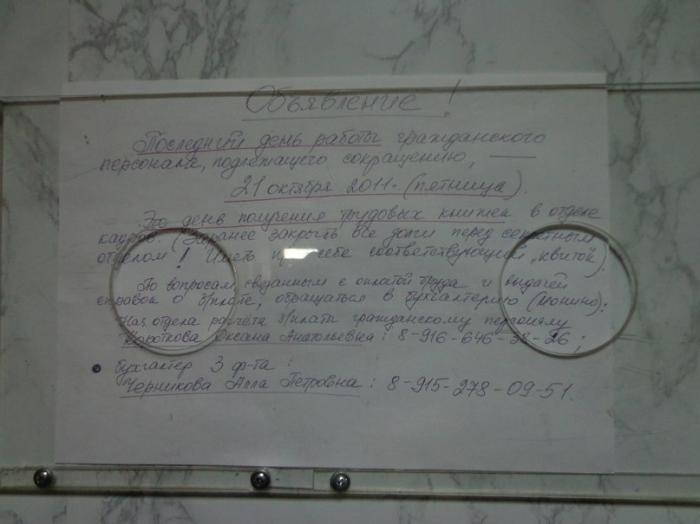 Объявление!
Последний день работы гражданского
персонала, подлежащего сокращению, —
21 октября 2011г. (пятница).
Это день получения трудовых книжек в отделе
кадров. (Заранее закрыть все долги перед секретным
отделом! Иметь при себе соответствующий „квиток“).
По вопросам, связанным с оплатой труда и выдачей
справок о з/плате, обращаться в бухгалтерию (Монино):
Нач. отдела расчёта з/платы гражданскому персоналу
Короткова Оксана Анатольевна: 8-916-646-38-26;
• бухгалтер 3 ф-та:
Черникова Алла Петровна: 8-915-278-09-51.